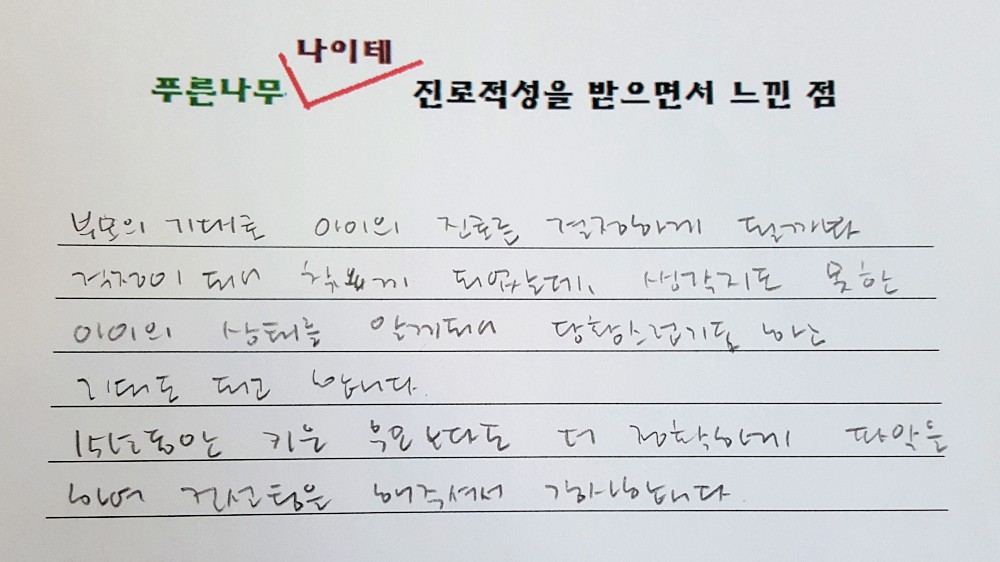 나이테
푸른나무 진로적성을 받으면서 느낀 점
부모의 기대로 아이의 진로를 결정하게 될까봐
걱정이 되어 되었는데, 생각지도 못한
아이의 상태를 알게되어 당황스럽기도 하고
기대도 되고 합니다.
15년동안 키운 부모보다도 더 정확하게 파악을
하여 컨설팅을 해주셔서 감사합니다.